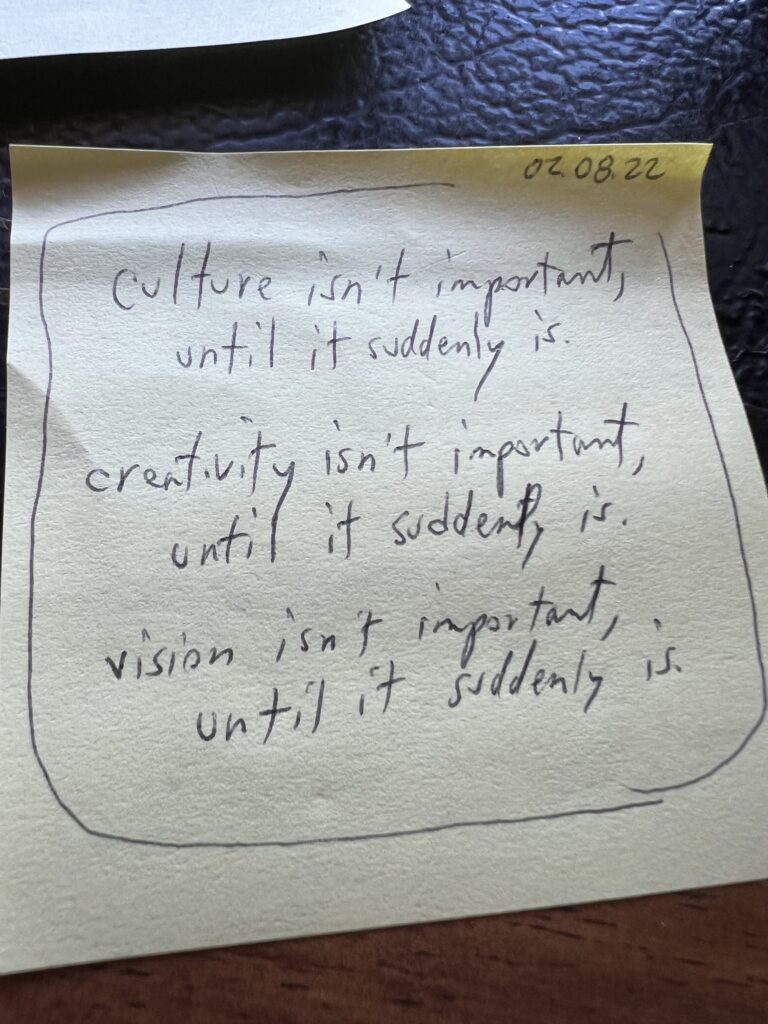 02.08.22
culture isn't important,
until it suddenly is.
creativity isn't important,
until it suddenly is.
vision isn't important,
until it suddenly is.